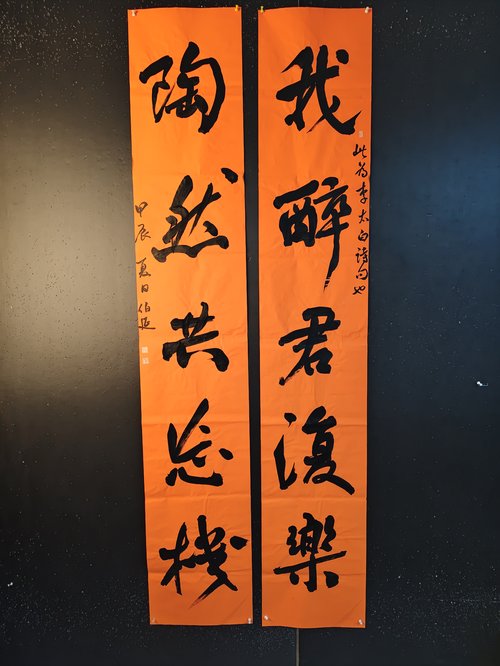 我醉君復樂
此為李太白詩句也
陶然共忘機
甲辰夏日伯延